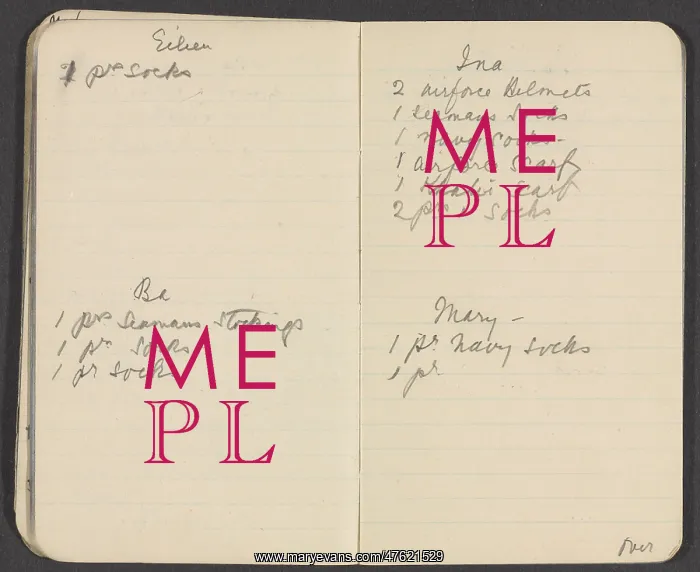 Eileen
prs socks
Ba
1 prs Seamans Stockings
1 pr Socks
1 pr socks
Ina
2 airforce Helmets
1 Seamans Socks
1 navy socks -
1 airforce Scarf
1 Khaki Scarf
2 prs Socks
Mary -
1 pr navy socks
1 pr
over
ME
PL
ME
PL
www.maryevans.com/47621529